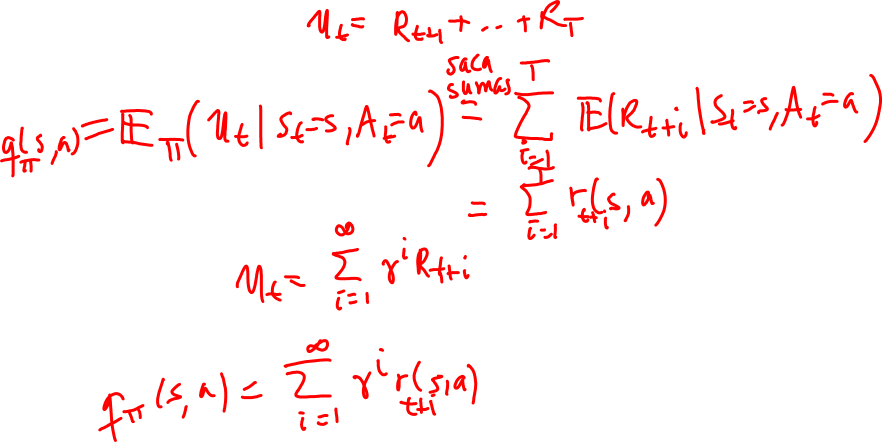 u_t = R_{t+1} + ... + R_T
q_π(s,a) = 𝔼_π(u_t | S_t=s, A_t=a) = (saca sumas) ∑_{i=1}^{T} 𝔼(R_{t+i} | S_t=s, A_t=a)
= ∑_{i=1}^{T} r_{t+i}(s,a)
u_t = ∑_{i=1}^{∞} γ^i R_{t+i}
q_π(s,a) = ∑_{i=1}^{∞} γ^i r_{t+i}(s,a)